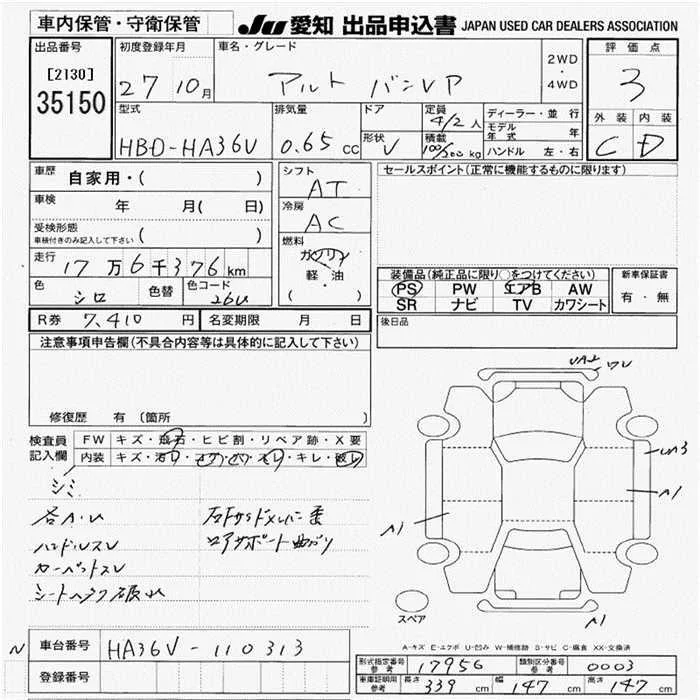 車内保管・守衛保管
JU 愛知 出品申込書 JAPAN USED CAR DEALERS ASSOCIATION
出品番号
[2130]
35150
初度登録年月
27 10月
車名・グレード
アルト バンVP
2WD
・
4WD
評価点
3
外装 内装
C D
型式
HBD-HA36V
排気量
0.65 cc
ドア
形状 V
定員
4/2人
積載
kg
ディーラー・並行
モデル年式 年
ハンドル 左・右
車歴 自家用・( )
車検 年 月( 日)
受検形態
車検付きのみ記入して下さい ( )
走行 17万6千376km
色 シロ 色替 色コード 26U
シフト
AT
冷房
AC
燃料
ガソリン
軽・油
( ・ )
セールスポイント(正常に機能するものに限ります)
装備品(純正品に限り○をつけてください)
PS PW エアB AW
SR ナビ TV カワシート
新車保証書
有・無
R券 7,410 円 名変期限 月 日
後日品
注意事項申告欄(不具合内容等は具体的に記入して下さい)
修復歴 有 (箇所
検査員
記入欄
FW キズ・飛石・ヒビ割・リペア跡・X要
内装 キズ・汚れ・コゲ・穴・スレ・キレ・破れ
シミ
各A・U
ハンドルスレ
カーペットスレ
A1
A1
A1
スペア
A-キズ E-エクボ U-凹み W-補修跡 S-サビ C-腐食 XX-交換済
N 車台番号 HA36V-110313
登録番号
形式指定番号 参考 17956 類別区分番号 参考 0003
車庫証明用 参考 長さ 339 cm 幅 147 cm 高さ 147 cm